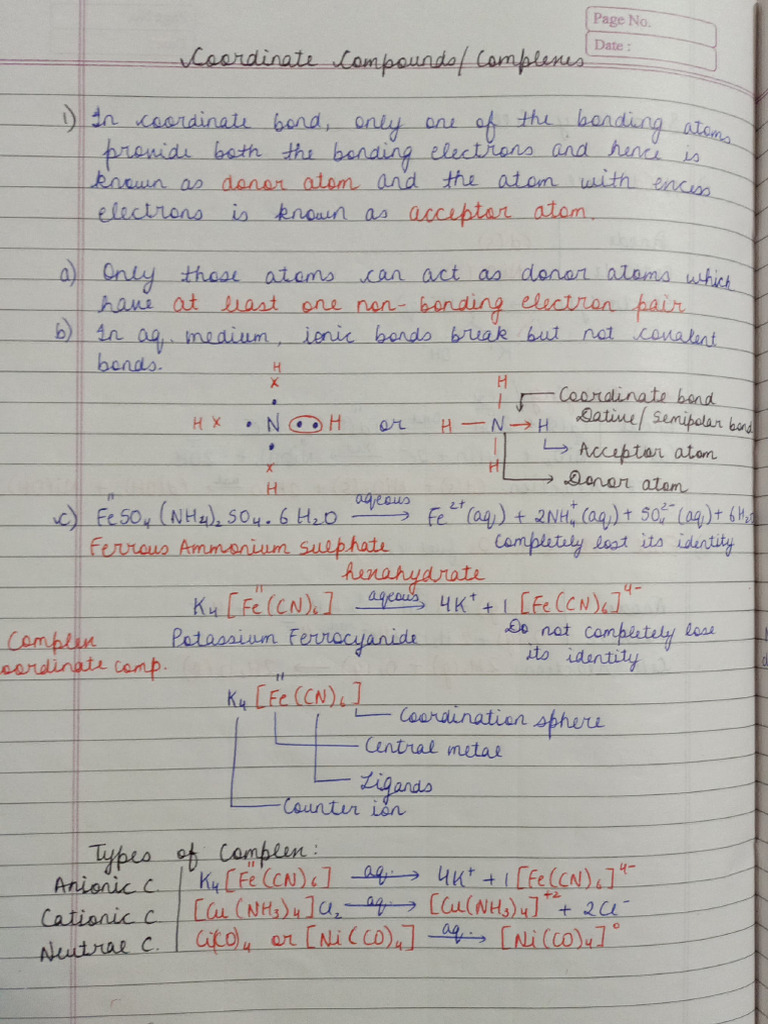 Page No.
Date :
Coordinate Compounds/Complexes
1) In coordinate bond, only one of the bonding atoms
provide both the bonding electrons and hence is
known as donor atom and the atom with excess
electrons is known as acceptor atom.
a) Only those atoms can act as donor atoms which
have at least one non-bonding electron pair
b) In aq. medium, ionic bonds break but not covalent
bonds.
H
x
•
H x • N •• H or H — N → H
•
x
H
H
H
Coordinate bond
Dative/Semipolar bond
Acceptor atom
Donor atom
c) Fe^{II}SO₄(NH₄)₂SO₄.6H₂O aqeous → Fe²⁺(aq) + 2NH₄⁺(aq) + SO₄²⁻(aq) + 6H₂
Ferrous Ammonium sulphate Completely lost its identity
hexahydrate
K₄[Fe^{II}(CN)₆] aqeous → 4K⁺ + 1[Fe(CN)₆]⁴⁻
Complex Potassium Ferrocyanide Do not completely lose
oordinate comp. its identity
K₄[Fe^{II}(CN)₆]
Coordination sphere
Central metal
Ligands
Counter ion
Types of Complex :
Anionic C. K₄[Fe^{II}(CN)₆] aq. → 4K⁺ + 1[Fe(CN)₆]⁴⁻
Cationic C [Cu(NH₃)₄]Cl₂ aq. → [Cu(NH₃)₄]⁺² + 2Cl⁻
Neutral C. or [Ni(CO)₄] aq. → [Ni(CO)₄]⁰